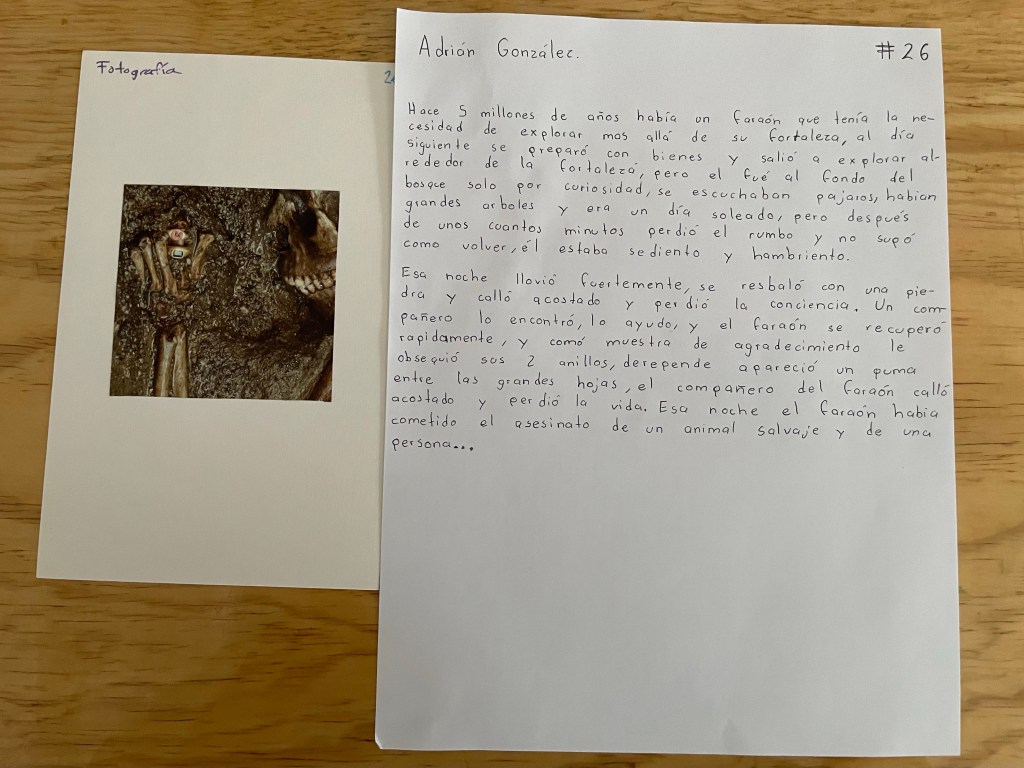 Fotografía
Adrián González.
#26
Hace 5 millones de años había un faraón que tenía la ne-
cesidad de explorar mas allá de su fortaleza, al día
siguiente se preparó con bienes y salió a explorar al-
rededor de la fortalezá, pero el fué al fondo del
bosque solo por curiosidad, se escuchaban pajaros, habian
grandes arboles y era un día soleado, pero después
de unos cuantos minutos perdió el rumbo y no supó
como volver, él estaba sediento y hambriento.
Esa noche llovió fuertemente, se resbaló con una pie-
dra y calló acostado y perdió la conciencia. Un com-
pañero lo encontró, lo ayudo, y el faraón se recuperó
rapidamente, y comó muestra de agradecimiento le
obsequió sus 2 anillos, derepende apareció un puma
entre las grandes hojas, el compañero del faraón calló
acostado y perdió la vida. Esa noche el faraón habia
cometido el asesinato de un animal salvaje y de una
persona...